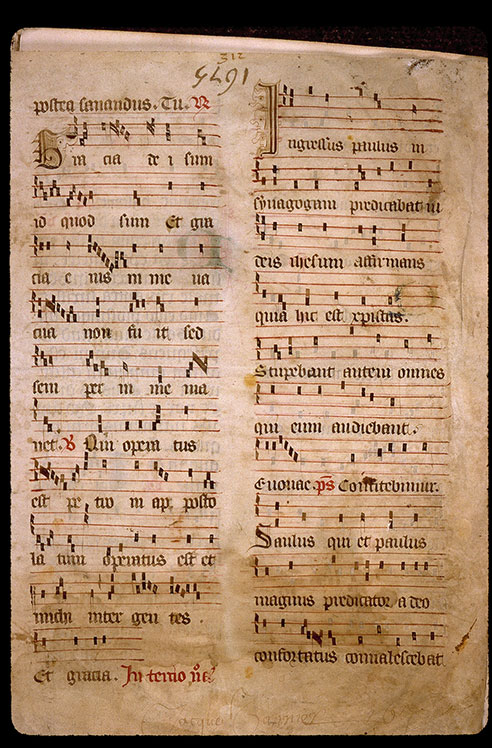 312
1675
postea sanandus. Tu. ℟
Gra cia de i sum
id quod sum Et gra
cia e ius in me ua
cua non fu it sed
sem per in me ma
net. ℣ Qui opera tus
est pe tro in ap posto
la tum operatus est et
michi inter gen tes.
Et gracia. In tercio
Ingressus paulus in
synagogam predicabat iu
deis ihesum affirmans
quia hic est xpistus.
Stupebant autem omnes
qui eum audiebant.
Euouae ps Confitebimur.
Saulus qui et paulus
magnus predicator a deo
confortatus conualescebat